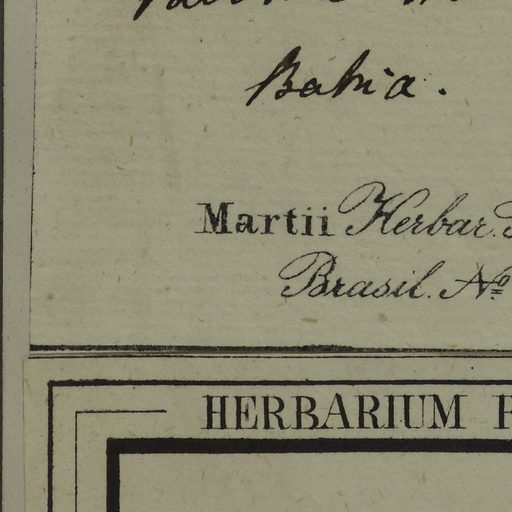 Bahia.
Martii Herbar.
Brasil. No
HERBARIUM